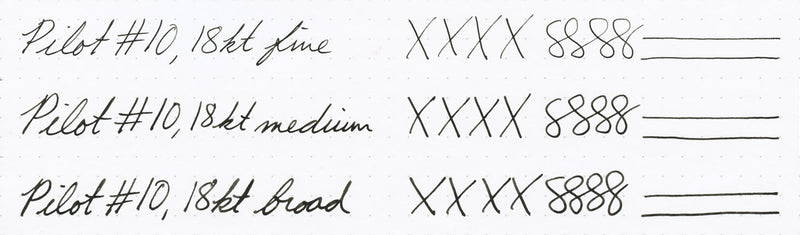 Pilot #10, 18kt fine XXXX 8888
Pilot #10, 18kt medium XXXX 8888
Pilot #10, 18kt broad XXXX 8888